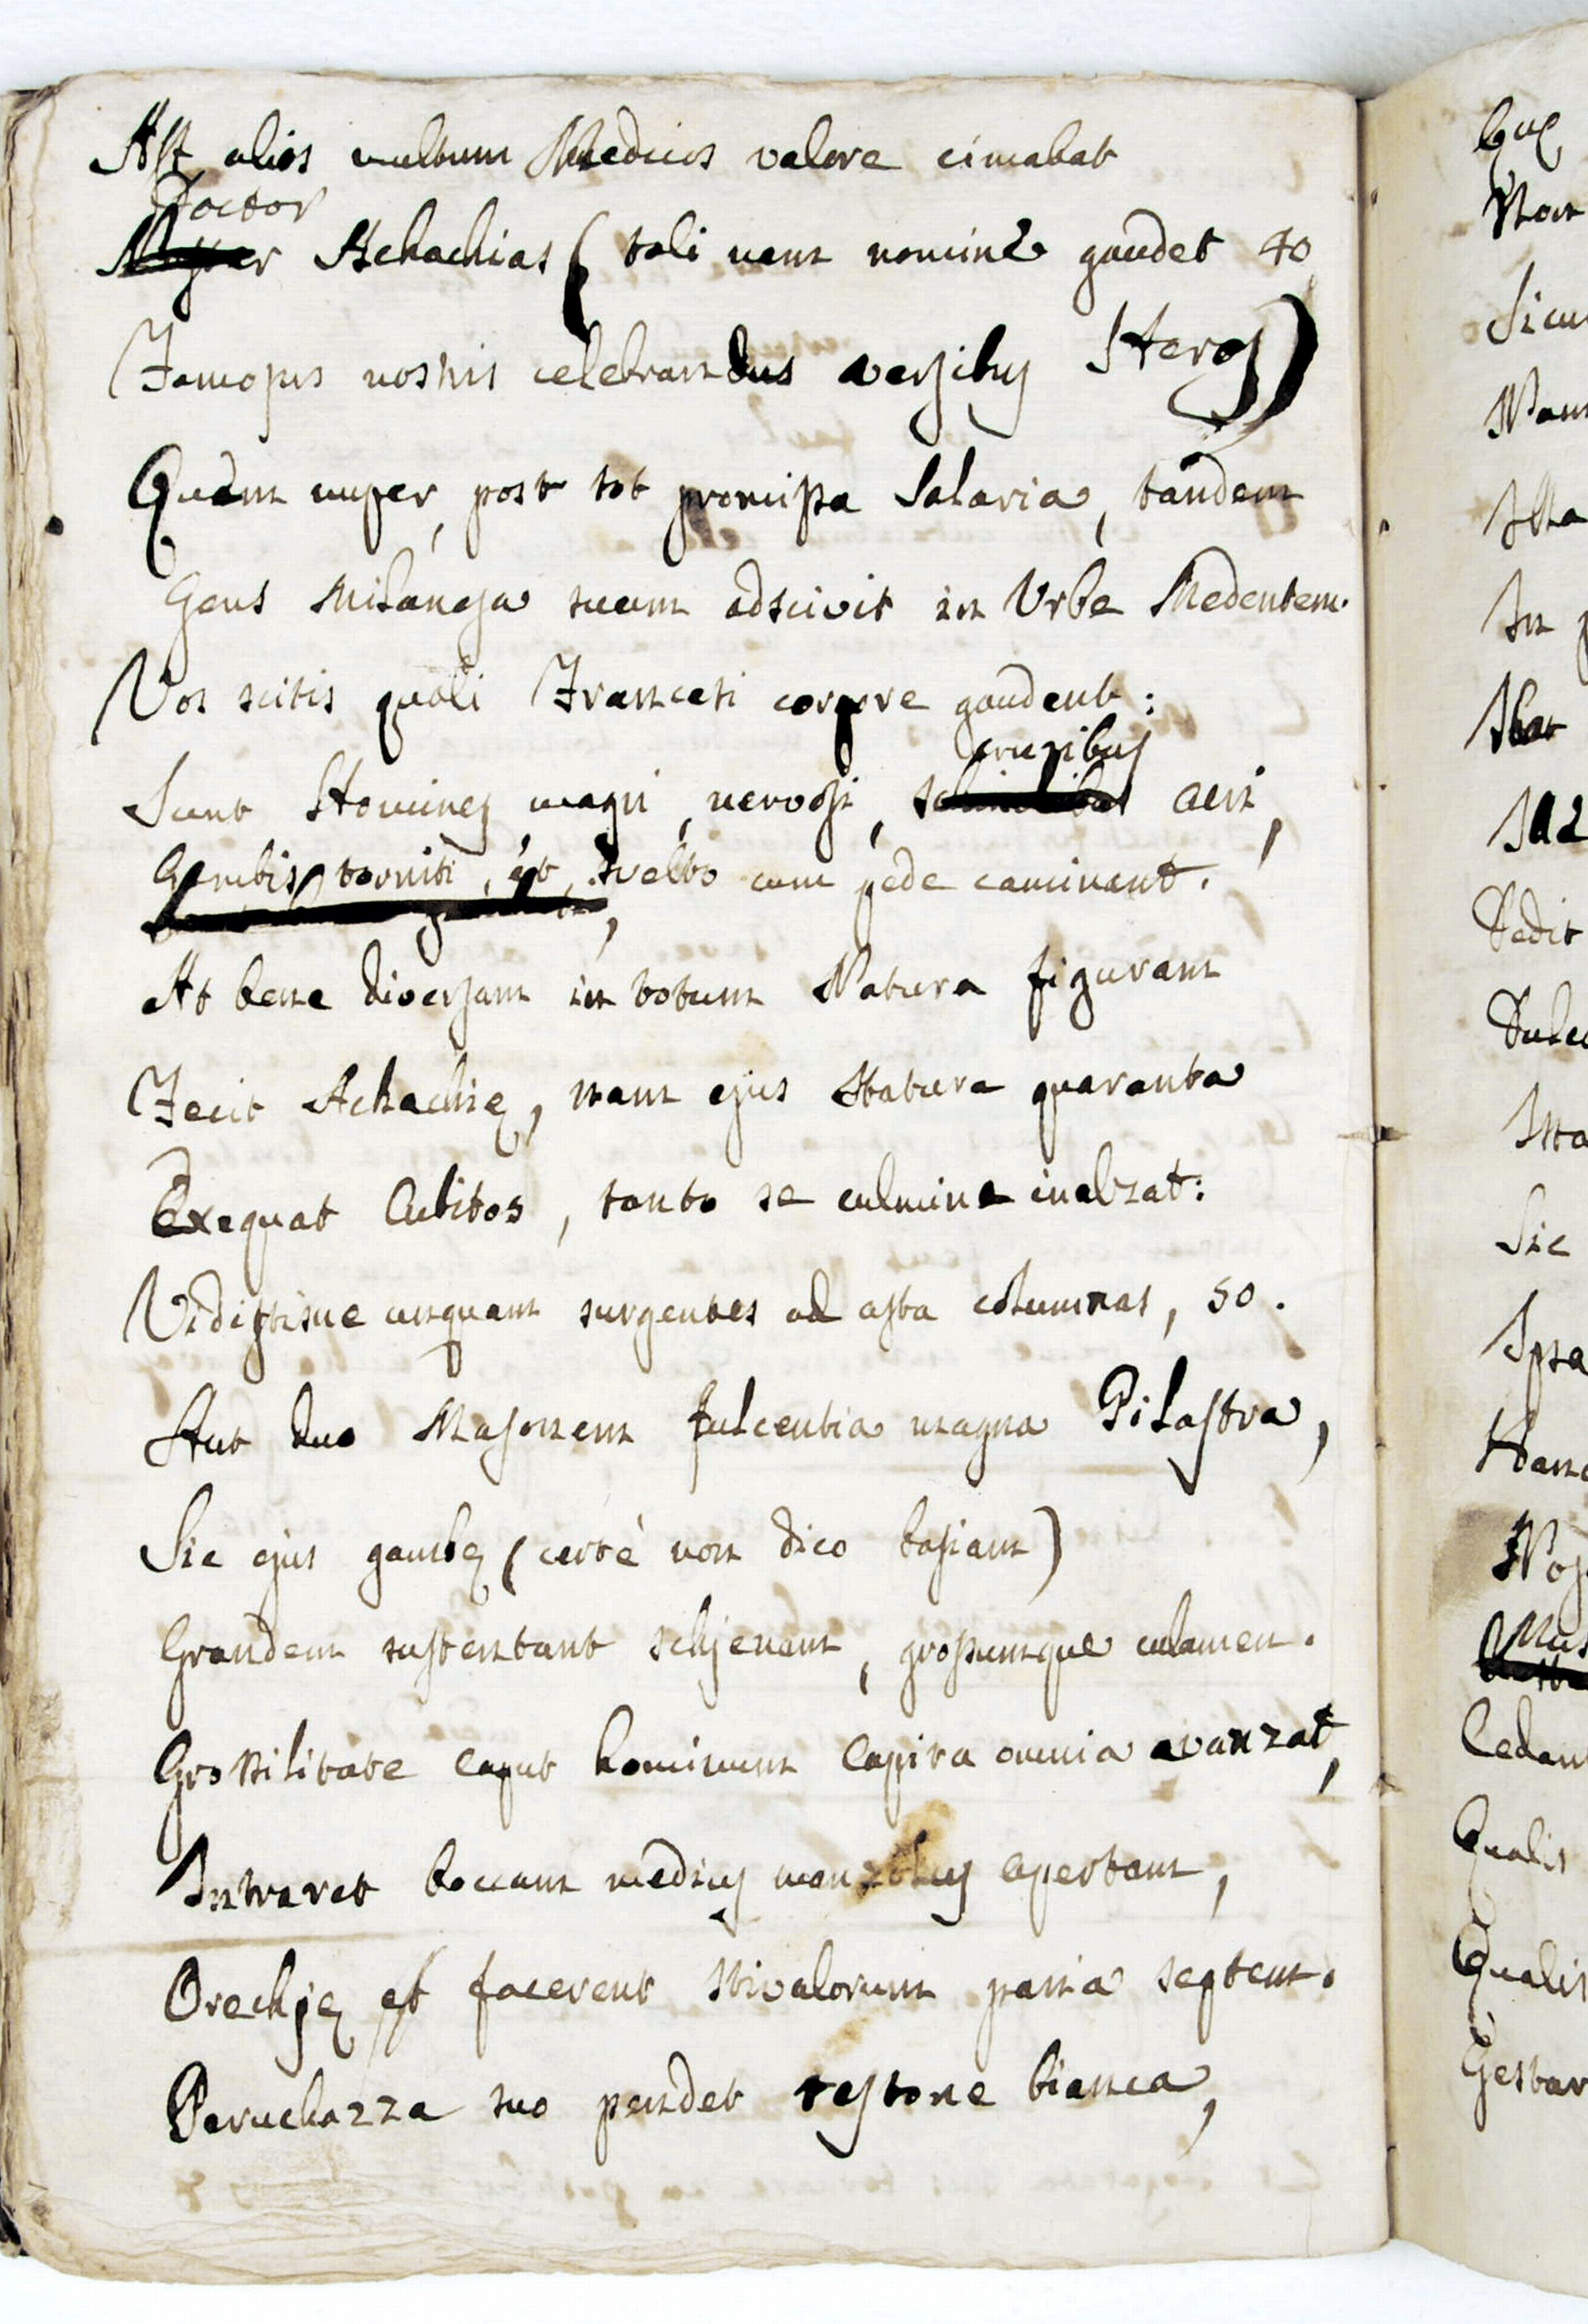 Ast alios multum Medicos valore cimabat
Doctor
Achachias (tali nam nomine gaudet 40
Famosus nostris celebrandus versibus Heros)
Quem nuper, post tot promissa Salaria, tandem
Gens Milanesa suum adscivit in Urbe Medentem.
Vos scitis quali Francesi corpore gaudent:
cruribus
Sunt Homines magri, nervosi, acri,
Gambis torniti, et svelto cum pede caminant.
At bene diversam in totum Natura figuram
Fecit Achachię, nam ejus Statura quaranta
Exequat Cubitos, tanto se culmine inalzat:
Vidistisne unquam surgentes ad astra columnas, 50.
Aut duo Masonem fulcentia magna Pilastra,
Sic ejus gambę (certè non dico busiam)
Grandem sustentant schjenam, grossumque culamen.
Grossilitate caput hominum Capita omnia avanzat,
Intraret boccam medius manzolus apertam,
Orechję et facerent Stivalorum paria septem.
Peruchazza suo pendet testone bianca,
Quę
Non
Sicu
In
Dedit
Sic
Ipsa
Hanc
Mus
Cedan
Qualis
Qualis
Gestar